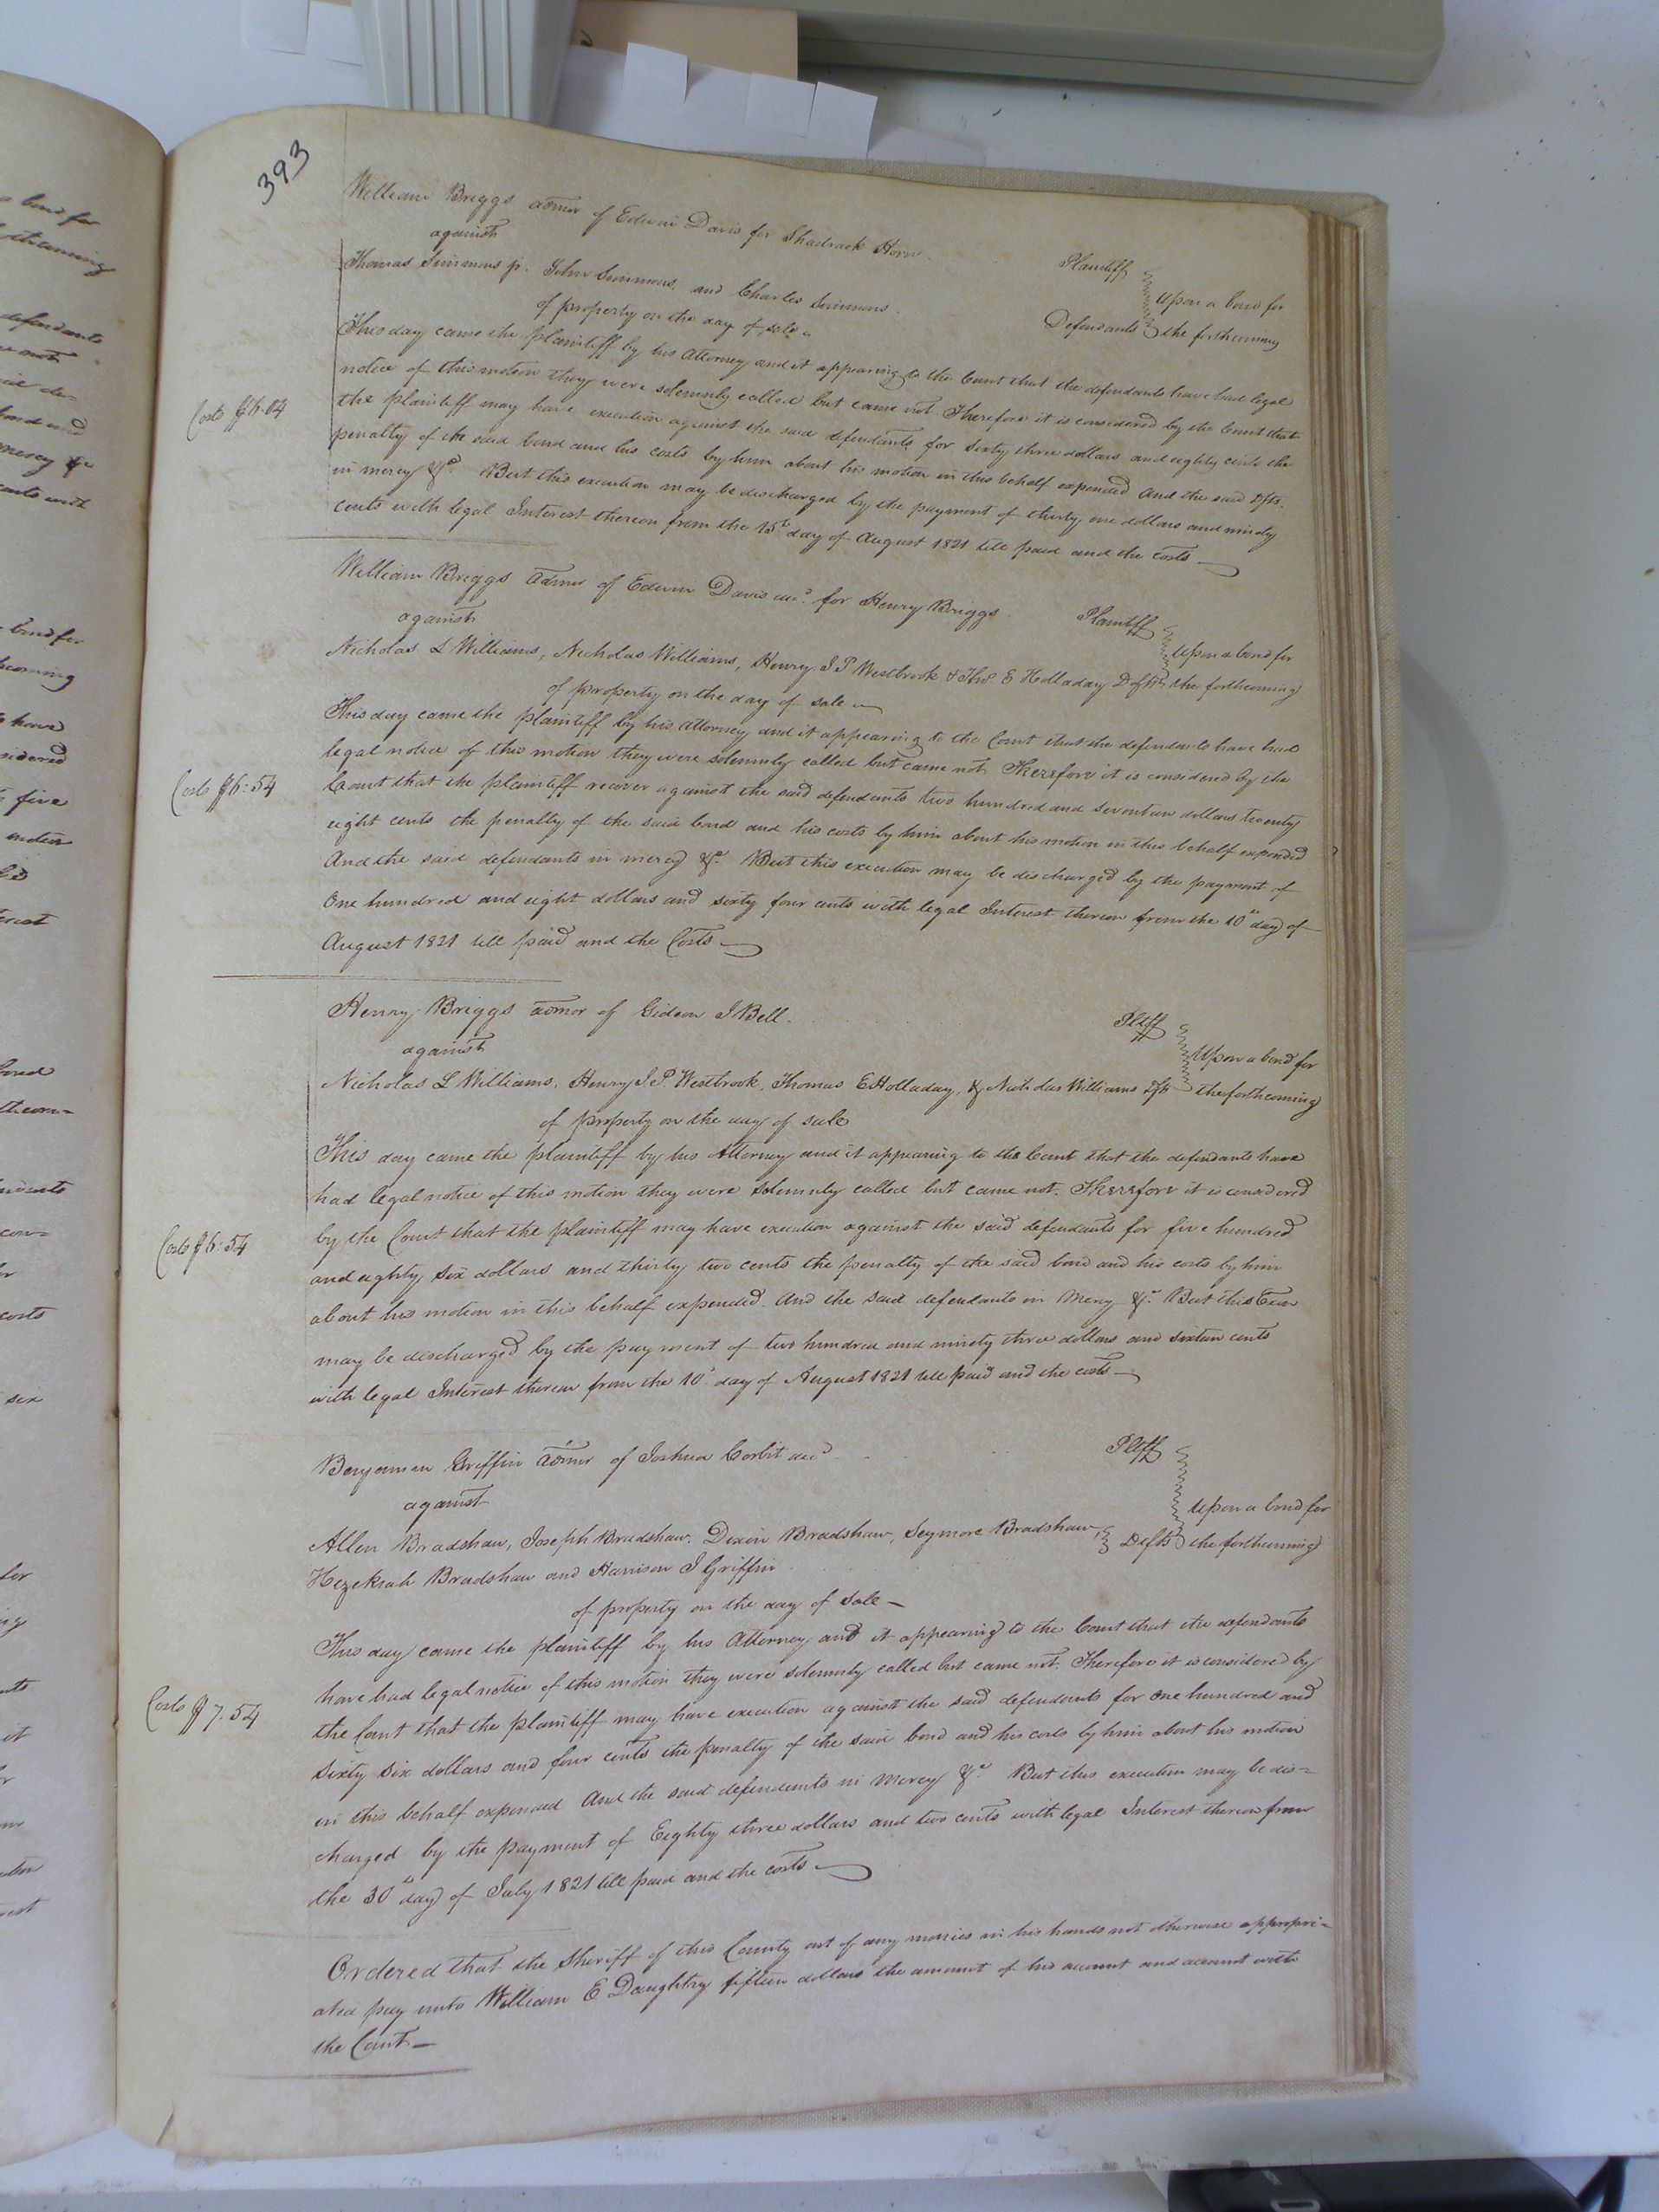 393
William Briggs admor of Edwin Davis for Shadrack Horn Plaintiff
against
Thomas Simmons jr. John Simmons, and Charles Simmons. Defendants
Upon a bond for
the forthcoming
of property on the day of sale
This day came the plaintiff by his Attorney and it appearing to the Court that the defendants have had legal
notice of this motion they were solemnly called but came not Therefore it is considered by the Court that
Costs $6.04
the plaintiff may have execution against the said defendants for sixty three dollars and eighty cents the
penalty of the said bond and his costs by him about his motion in this behalf expended And the said Defts.
in mercy &c. But this execution may be discharged by the payment of thirty one dollars and ninety
cents with legal Interest thereon from the 15th day of August 1821 till paid and the costs
William Briggs admor of Edwin Davis decd. for Henry Briggs Plaintiff
against
Nicholas L Williams, Nicholas Williams, Henry J P Westbrook & Thos E Holladay Defts
Upon a bond for
the forthcoming
of property on the day of sale
This day came the plaintiff by his Attorney and it appearing to the Court that the defendants have had
legal notice of this motion they were solemnly called but came not Therefore it is considered by the
Costs $6:54
Court that the plaintiff recover against the said defendants two hundred and seventeen dollars twenty
eight cents the penalty of the said bond and his costs by him about his motion in this behalf expended
And the said defendants in mercy &c. But this execution may be discharged by the payment of
One hundred and eight dollars and sixty four cents with legal Interest thereon from the 10th day of
August 1821 till paid and the Costs
Henry Briggs admor of Gideon J Bell. Pltff
against
Nicholas L Williams, Henry J. P. Westbrook, Thomas E Holladay, & Nicholas Williams Dfts
Upon a bond for
the forthcoming
of property on the day of sale
This day came the plaintiff by his Attorney and it appearing to the Court that the defendants have
had legal notice of this motion they were solemnly called but came not. Therefore it is considered
Costs $6:54
by the Court that the plaintiff may have execution against the said defendants for five hundred
and eighty six dollars and thirty two cents the penalty of the said bond and his costs by him
about his motion in this behalf expended. And the said defendants in Mercy &c. But this Exon
may be discharged by the payment of two hundred and ninety three dollars and sixteen cents
with legal Interest thereon from the 10th day of August 1821 till paid and the costs
Benjamin Griffin admor of Joshua Corbit decd Pltff
against
Allen Bradshaw, Joseph Bradshaw, Dixon Bradshaw, Seymore Bradshaw,
Hezekiah Bradshaw and Harrison J Griffin Defts
Upon a bond for
the forthcoming
of property on the day of sale
This day came the plaintiff by his Attorney and it appearing to the Court that the defendants
have had legal notice of this motion they were solemnly called but came not. Therefore it is considered by
Costs $7.54
the Court that the plaintiff may have execution against the said defendants for One hundred and
sixty six dollars and four cents the penalty of the said bond and his costs by him about his motion
in this behalf expended And the said defendants in Mercy &c. But this execution may be dis=
charged by the payment of Eighty three dollars and two cents with legal Interest thereon from
the 30th day of July 1821 till paid and the costs
Ordered that the Sheriff of this County out of any monies in his hands not otherwise appropri=
ated pay unto William E Daughtry fifteen dollars the amount of his account and account with
the Court